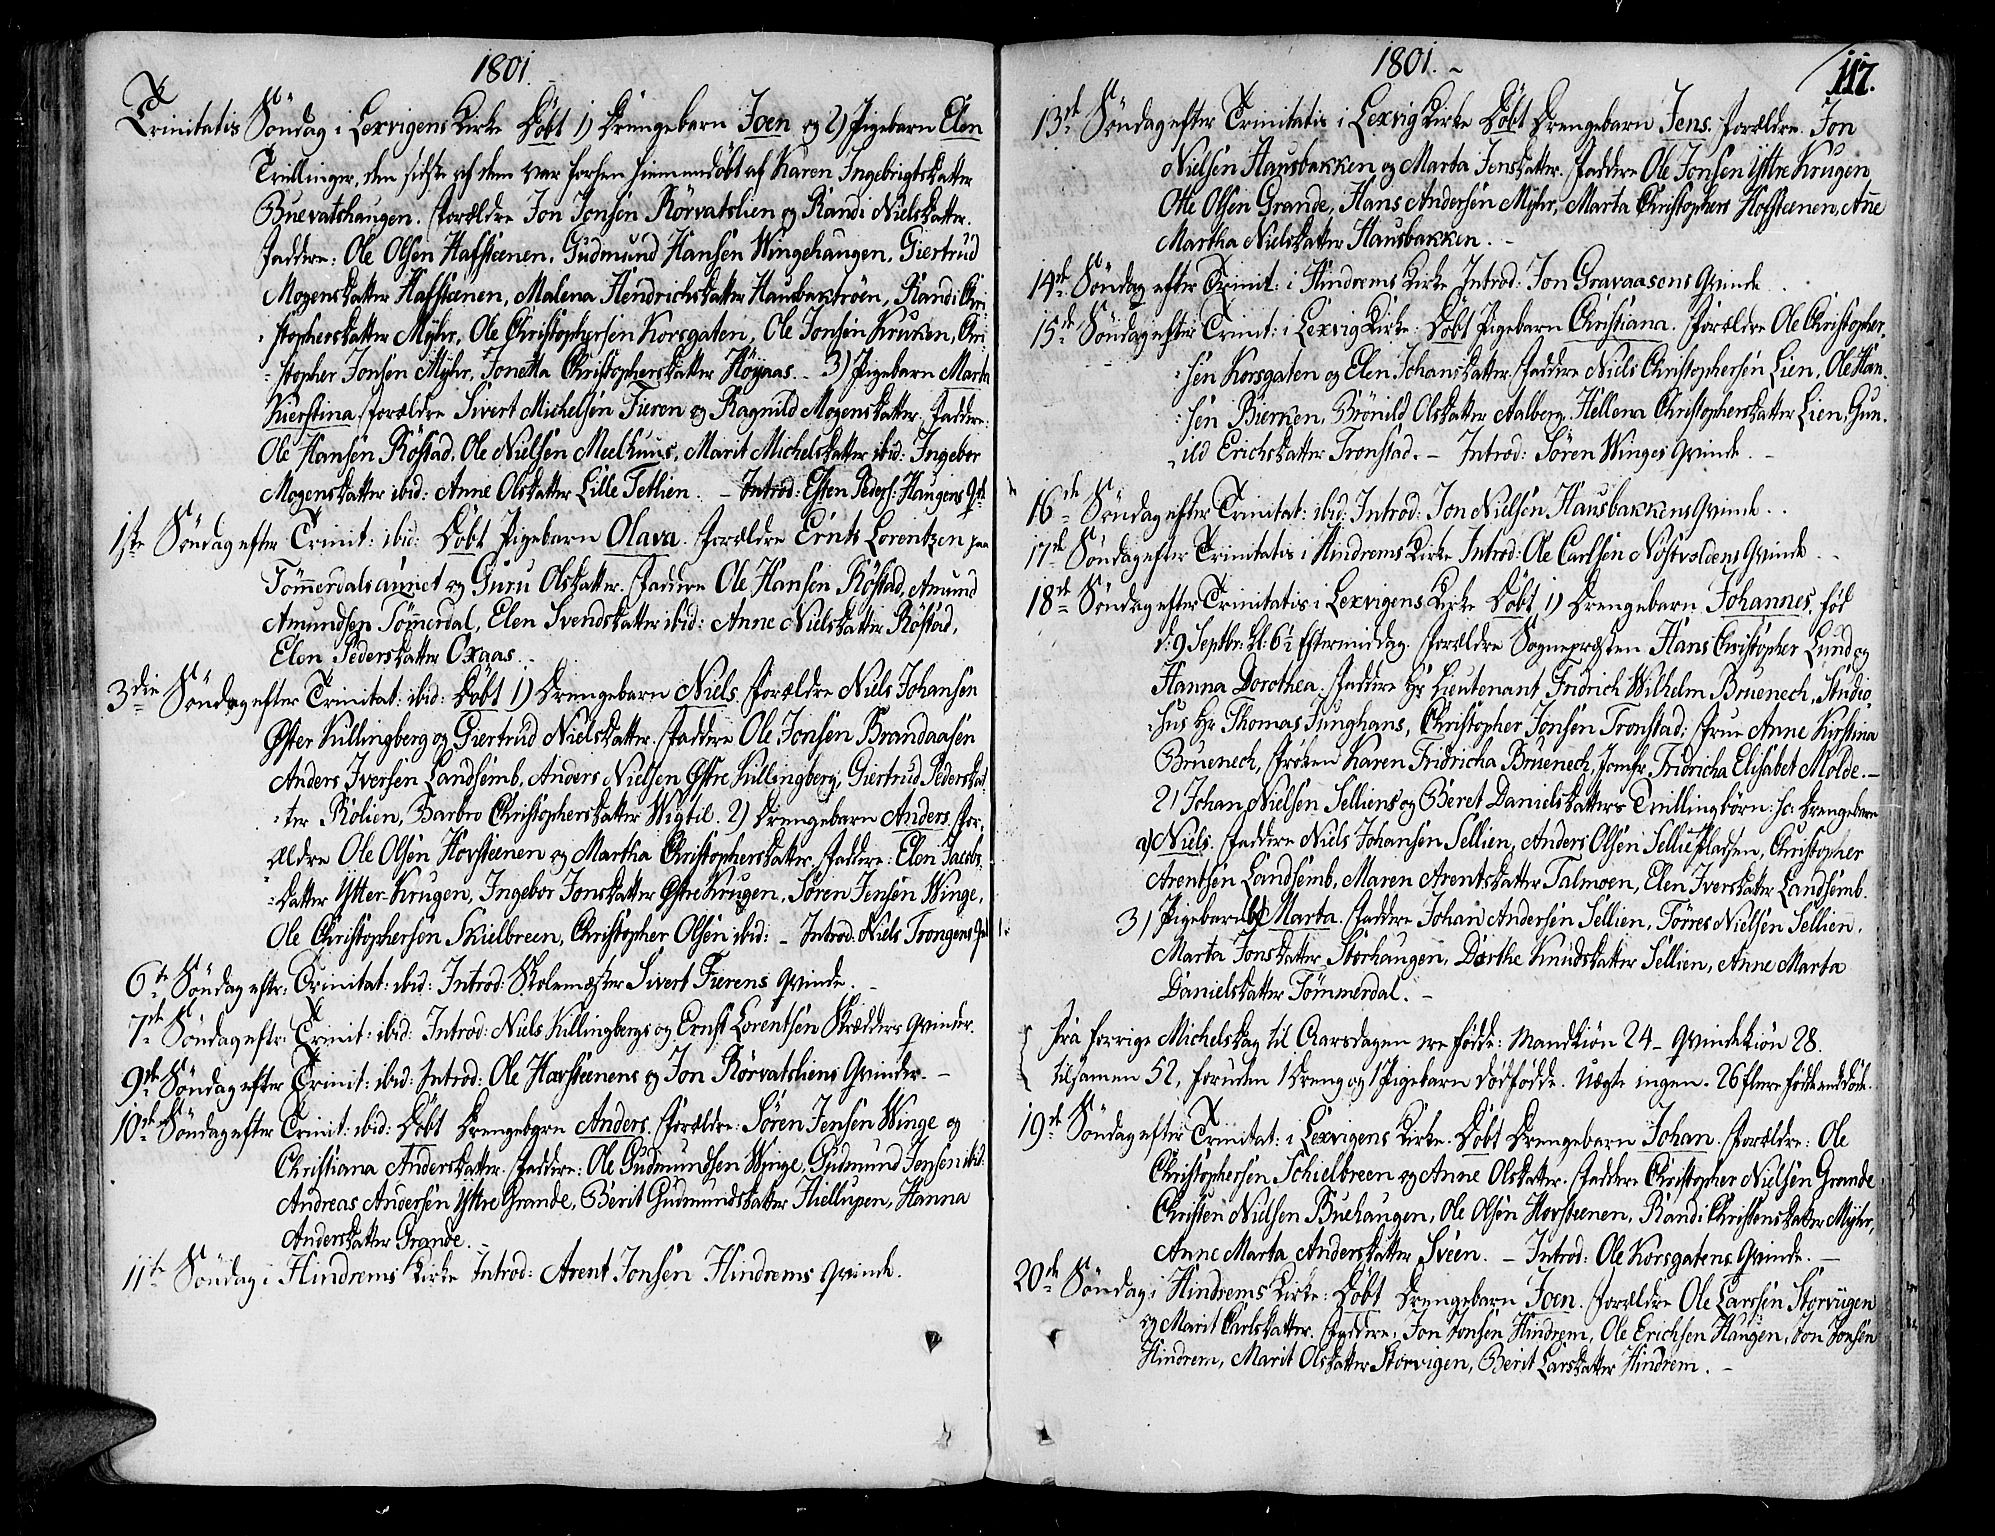 1801.
Trinitatis Söndag i Lexvigens Kirke Döbt 1) Drengebarn Joen og 2) Pigebarn Elen
Tvillinger, den sidste af dem var forhen hiemmedöbt af Karen Ingebrigtsdatter
Buevatshaugen. Forældre Jon Jonsen Rörvatslien og Randi Nielsdatter.
Faddere: Ole Olsen Hafsteenen, Gudmund Hansen Wingehaugen, Giertrud
Mogensdatter Hafsteenen, Malena Hendrichsdatter Hausbaktröen, Randi Chri
stophersdatter Myhr, Ole Christophersen Korsgaten, Ole Jonsen Kruken, Chri
stopher Jonsen Myhr, Jonetta Christophersdatter Höyaas. - 3) Pigebarn Marta
Kierstina, forældre Sivert Michelsen Fieren og Ragnild Mogensdatter. Faddere:
Ole Hansen Röstad, Ole Nielsen Meelhuus, Marit Michelsdatter ibid: Ingebor
Mogensdatter ibid: Anne Olsdatter Lille Tetlien. - Introd: Esten Peders: Haugens Qv:
1ste Söndag efter Trinit: ibid: Döbt Pigebarn Olava. Forældre Ernts Lorentzen paa
Tömmerdalsaunet og Guru Olsdatter. Faddere Ole Hansen Röstad, Amund
Amundsen Tömmerdal, Elen Svendsdatter ibid: Anne Nielsdatter Röstad,
Elen Pedersdatter Oxaas.
3die Söndag efter Trinitat: ibid: Döbt 1) Drengebarn Niels. Forældre Niels Johansen
Öster Killingberg og Giertrud Nielsdatter. Faddere Ole Jonsen Brandaasen
Anders Iversen Landsemb, Anders Nielsen Östre Killingberg, Giertrud Pedersdat
ter Rölien, Barbro Christophersdatter Wigtil. 2) Drengebarn Anders. For,
ældre Ole Olsen Hovsteenen og Martha Christophersdatter. Faddere: Elen Jacobs
datter Ytter-Krugen, Ingebor Jonsdatter Östre Krugen, Sören Jensen Winge,
Ole Christophersen Skielbreen, Christopher Olsen ibid: - Introd. Niels Trongens Qv:
6te Söndag eftr: Trinitat: ibid: Introd: Skolemester Sivert Fierens Qvinde. -
7de Söndag eftr: Trinit: ibid: Introd: Niels Killingbergs og Ernst Lorentsen Skrædders Qvinder.
9de Söndag efter Trinit: ibid: Introd: Ole Hovsteenens og Jon Rörvatsliens Qvinder. -
10de Söndag efter Trinit: ibid: Döbt Drengebarn Anders. Forældre: Sören Jensen Winge og
Christiana Andersdatter. Faddere: Ole Gudmundsen Winge, Gudmund Jensen ibid:
Andreas Andersen Yttre Grande, Berit Gudmundsdatter Hiellupen, Hanna
Andersdatter Grande. -
11te Söndag i Hindrems Kirke Introd: Arent Jonsen Hindrems Qvinde.
1801. -
117.
13de Söndag efter Trinitatis i Lexvig Kirke Döbt Drengebarn Jens. Forældre. Jon
Nielsen Hausbakken og Marta Jensdatter. Faddere Ole Jonsen Yttre Krugen
Otte Olsen Grande, Hans Andersen Myhr, Marta Christophers Hofsteenen, Ane
Martha Nielsdatter Hausbakken. -
14de Söndag efter Trinit: i Hindrems Kirke Introd: Jon Gravaasens Qvinde
15de Söndag efter Trinit: i Lexvig Kirke: Döbt Pigebarn Christiana. Forældre Ole Christopher,
sen Korsgaten og Elen Johansdatter. Faddere Niels Christophersen Lien, Ole Han,
sen Bierken, Brönild Olsdatter Aalberg, Hellena Christophersdatter Lien, Gun,
ild Erichsdatter Tronstad. - Introd: Sören Winges Qvinde. -
16de Söndag efter Trinitat: ibid: Introd: Jon Nielsen Hausbakkens Qvinde. .
17de Söndag efter Trinitatis i Hindrems Kirke Introd: Ole Carlsen Nostvoldens Qvinde
18de Söndag efter Trinitatis i Lexvigens Kirke Döbt 1) Drengebarn Johannes, föd
d: 9 Septbr: kl: 6½ Eftermiddag. Forældre Sognepræsten Hans Christopher Lund og
Hanna Dorothea. Faddere Hr Lieutenant Fridrich Wilhelm Bruenech, Studio,
sus Hr Thomas Junghans, Christopher Jonsen Tronstad; Frue Anne Kirstina
Bruenech, Fröken Karen Fridricha Bruenech, Jomfr. Fridricha Elisabet Molde. -
2) Johan Nielsen Selliens og Beret Danielsdatters Tvillingbörn: sc: Drengebarn
a) Niels. Faddere Niels Johansen Sellien, Anders Olsen Sellie Pladsen, Christopher
Arentsen Landsemb, Maren Arentsdatter Talmoen, Elen Iversdatter Landsemb.
3) Pigebarn b) Marta. Faddere Johan Andersen Sellien, Törres Nielsen Sellien,
Marta Jonsdatter Storhaugen, Dorthe Knudsdatter Sellien, Anne Marta
Danielsdatter Tömmerdal. -
Fra forrige Michelsdag til Aarsdagen ere födde: Mandkiön 24 - Qvindekiön 28.
tilsamen 52, foruden 1 Dreng og 1 Pigebarn dödfödde. Uægte ingen. 26 flere födde end döde.
19de Söndag efter Trinitat: i Lexvigens Kirke. Döbt Drengebarn Johan. Forældre: Ole
Christophersen Schielbreen og Anne Olsdatter. Faddere Christopher Nielsen Grande
Christen Nielsen Buehaugen, Ole Olsen Hovsteenen, Randi Christensdatter Myhr,
Anne Marta Andersdatter Sveen. - Introd: Ole Korsgatens Qvinde. -
20de Söndag i Hindrems Kirke: Döbt Drengebarn Joen. Forældre Ole Larssen Storvigen
og Marit Carlsdatter. Faddere, Jon Jonsen Hindrem, Ole Erichsen Haugen, Jon Jonsen
Hindrem, Marit Olsdatter Storvigen, Berit Larsdatter Hindrem. -